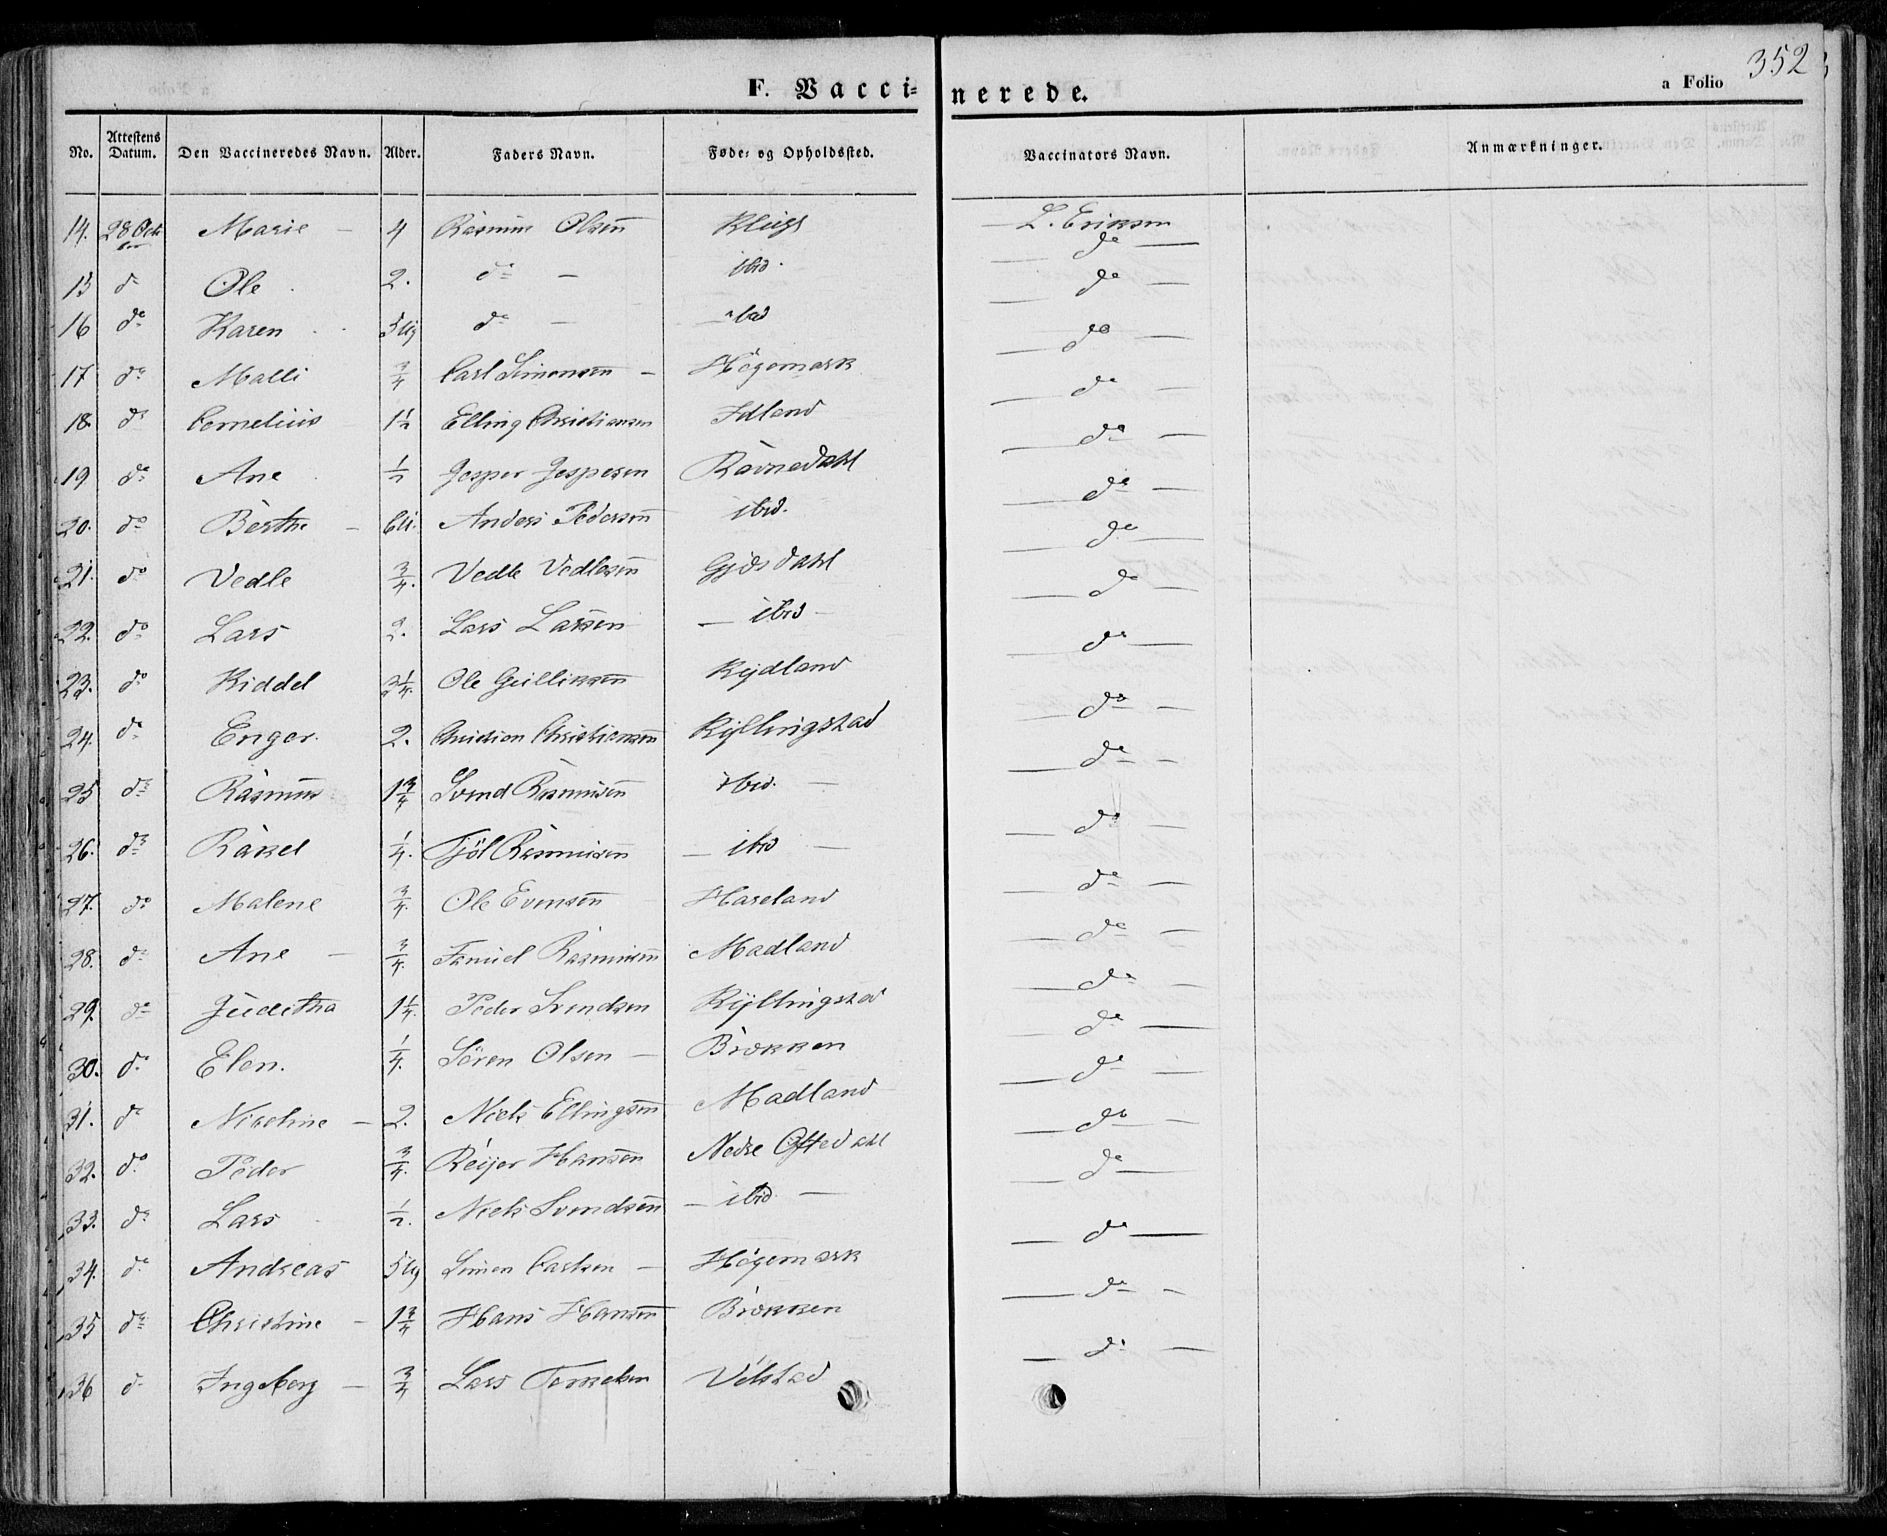 352
F. Vacci=nerede.
a Folio
No. Attestens Datum. Den Vaccineredes Navn. Alder. Faders Navn. Føde- og Opholdssted. Vaccinators Navn. Anmærkninger.
14. 28 Oct Marie – 4 Rasmus Olsen L. Eriksen
do
15 do Ole 2. do – ibid. do
16 do Karen do – ibid do
17 do Malli 3/4 Carl Simonsen – Högemark do
18. do Cornelius 1 1/2 Elling Christiansen Idland do
19 do Ane 1/2 Jesper Jespersen Ravnedahl do
20. do Berthe – Anders Pedersen ibid. do
21. do Vedle 3/4. Vedle Vedlesen Gjesdahl do
22. do Lars 2. Lars Larsen – ibid – do
23. do Riddel Ole Gulliksen Rydland do
24. do Enger. 2. Christian Christiansen Kyllingstad do
25 do Rasmus 1 3/4 Svend Rasmusen ibid. – do
26. do Rakel 1/4. Tjöl Rasmusen – ibid – do
27. do Malene 3/4. Ole Evensen Haveland do
28. do Ane – 3/4. Samuel Rasmusen Madland do
29. do Juditha 1 1/4. Peder Svendsen Kyllingstad do
30. do Elen. 1/4. Sören Olsen – Brækken do
31. do Nicoline – 2. Niels Ellingsen Madland do
32. do Peder 3/4. Reijer Hansen Nedre Oftedahl do
33. do Lars 1/2. Niels Svendsen – ibid – do
34. do Andreas Simen Carlsen – Högemark do
35 do Christine – 1 3/4 Hans Hansen Brækken do
36 do Ingeborg – 3/4 Lars Tarmelsen Vølstad